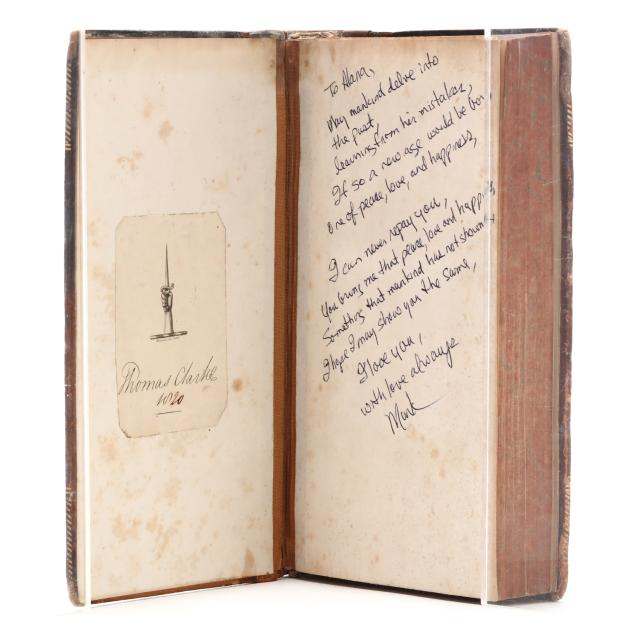 Thomas Clarke
1020
To Hana,
May mankind delve into
the past,
learning from her mistakes,
If so a new age would be born,
one of peace, love, and happiness,
I can never repay you,
You bring me that peace, love and happiness
Something that mankind has not shown
I hope I may show you the same,
I love you,
with love always
Mark